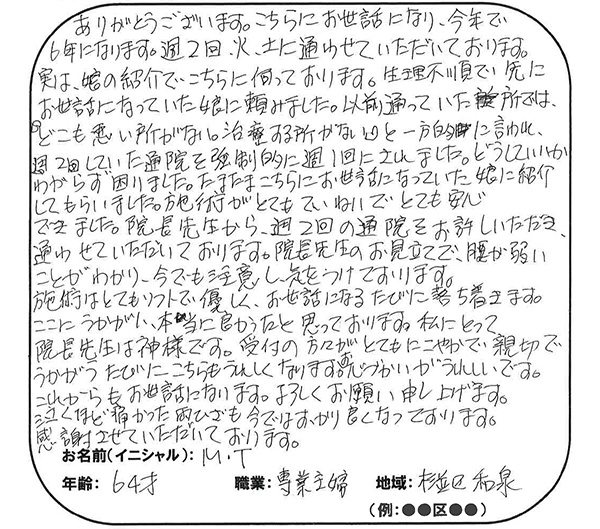 ありがとうございます。こちらにお世話になり、今年で
6年になります。週2回、火、土に通わせていただいております。
実は、娘の紹介でこちらに伺っております。生理不順で先に
お世話になっていた娘に頼みました。以前通っていた診所では、
どこも悪い所がない。治療する所がないと一方的に言われ、
週2回していた通院を強制的に週1回にされました。どうしていいか
わからず困りました。たまたまこちらにお世話になっていた娘に紹介
してもらいました。施術がとてもていねいでとても安心
できました。院長先生から、週2回の通院をお許しいただき、
通わせていただいております。院長先生のお見立てで、腰が弱い
ことがわかり、今でも注意し、気をつけております。
施術はとてもソフトで優しく、お世話になるたびに落ち着きます。
ここにうかがい、本当に良かったと思っております。私にとって
院長先生は神様です。受付の方々がとてもにこやかで親切で
うかがうたびにこちらもうれしくなります。お気づかいがうれしいです。
これからもお世話になります。よろしくお願い申し上げます。
泣くほど痛かった両ひざも今ではすっかり良くなっております。
感謝させていただいております。
お名前(イニシャル): M.T
年齢: 64才 職業: 専業主婦 地域: 杉並区和泉
(例:●●区●●)